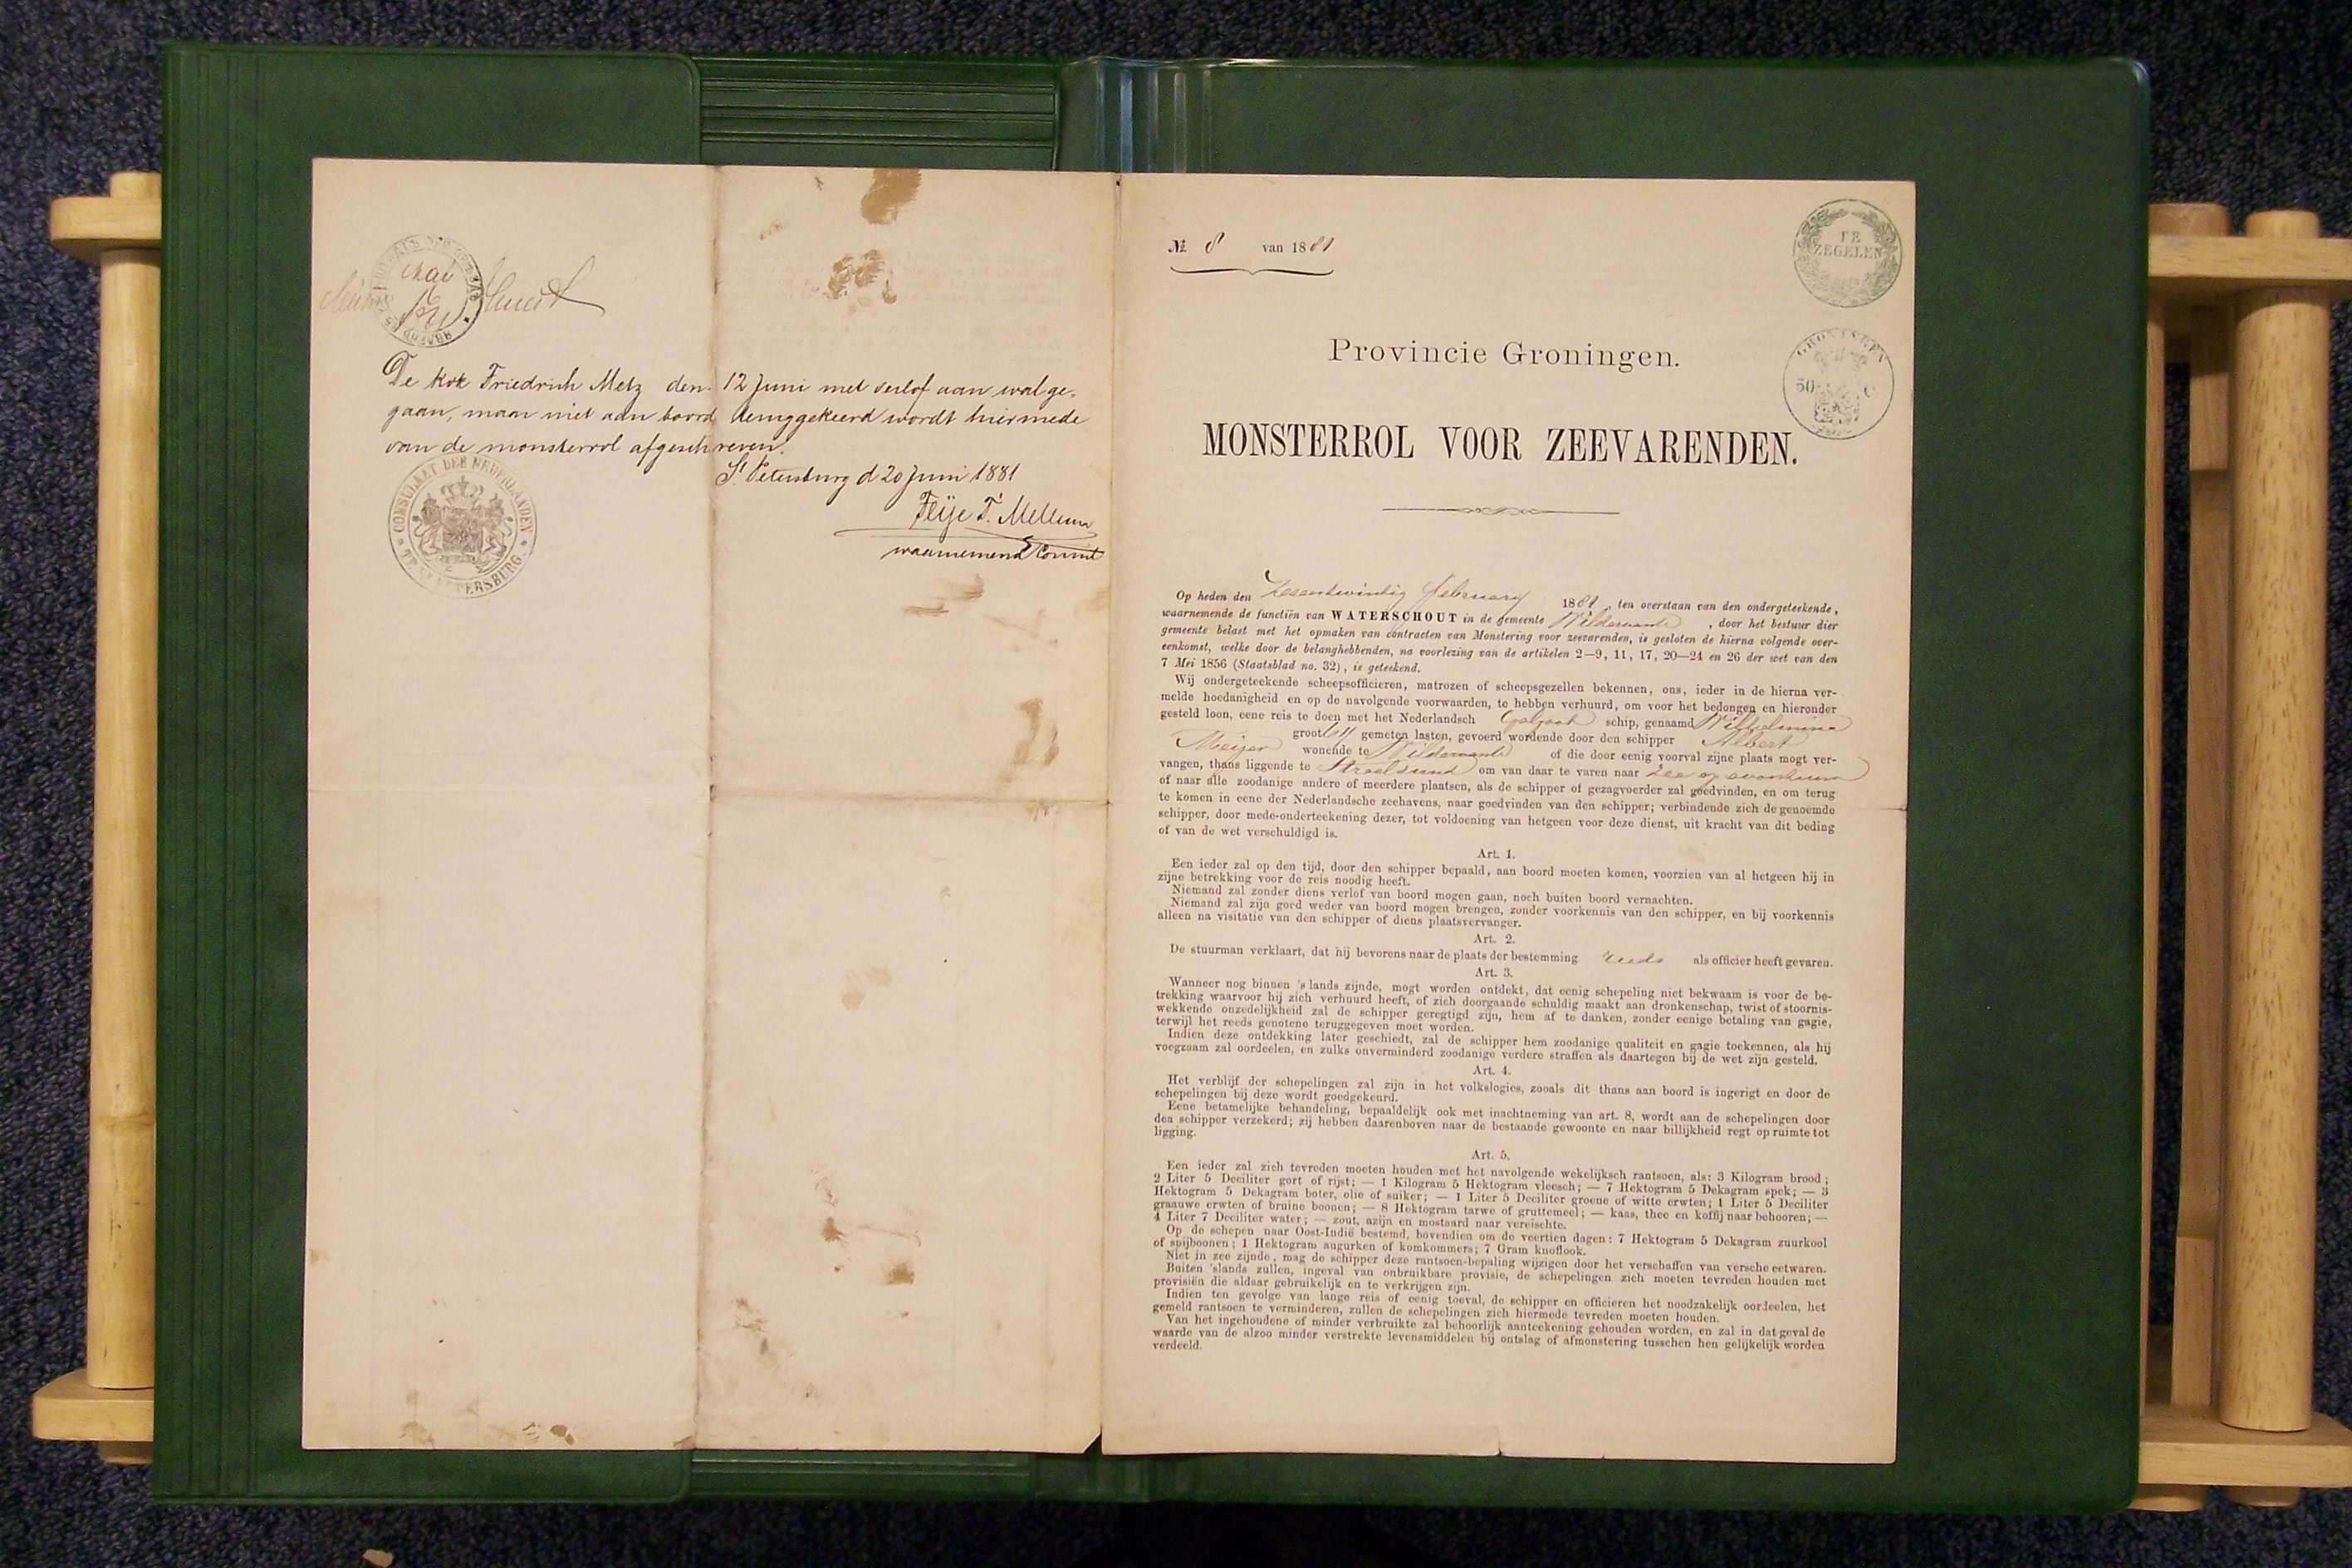 mai
De kok Friedrich Metz den 12 Juni met verlof aan wal ge-
gaan, maar niet aan boord teruggekeerd wordt hiermede
van de monsterrol afgeschreven.
St Petersburg d 20 Juni 1881
Feije F. Mellema
waarnemend Consul
CONSULAAT DER NEDERLANDEN
TE ST PETERSBURG.
No. 8 van 1881
TE
ZEGELEN
GRONINGEN
50 C
Provincie Groningen.
MONSTERROL VOOR ZEEVARENDEN.
Op heden den Zesentwintig february 1881, ten overstaan van den ondergeteekende,
waarnemende de functiën van WATERSCHOUT in de gemeente Wildervank, door het bestuur dier
gemeente belast met het opmaken van contracten van Monstering voor zeevarenden, is gesloten de hierna volgende over-
eenkomst, welke door de belanghebbenden, na voorlezing van de artikelen 2—9, 11, 17, 20—24 en 26 der wet van den
7 Mei 1856 (Staatsblad no. 32), is geteekend.
Wij ondergeteekende scheepsofficieren, matrozen of scheepsgezellen bekennen, ons, ieder in de hierna ver-
melde hoedanigheid en op de navolgende voorwaarden, te hebben verhuurd, om voor het bedongen en hieronder
gesteld loon, eene reis te doen met het Nederlandsch Galjoot schip, genaamd Wilhelmina
groot gemeten lasten, gevoerd wordende door den schipper Albert
Meijer wonende te Wildervank of die door eenig voorval zijne plaats mogt ver-
vangen, thans liggende te Straalsund om van daar te varen naar zee op avontuur
of naar alle zoodanige andere of meerdere plaatsen, als de schipper of gezagvoerder zal goedvinden, en om terug
te komen in eene der Nederlandsche zeehavens, naar goedvinden van den schipper; verbindende zich de genoemde
schipper, door mede-onderteekening dezer, tot voldoening van hetgeen voor deze dienst, uit kracht van dit beding
of van de wet verschuldigd is.
Art. 1.
Een ieder zal op den tijd, door den schipper bepaald, aan boord moeten komen, voorzien van al hetgeen hij in
zijne betrekking voor de reis noodig heeft.
Niemand zal zonder diens verlof van boord mogen gaan, noch buiten boord vernachten.
Niemand zal zijn goed weder van boord mogen brengen, zonder voorkennis van den schipper, en bij voorkennis
alleen na visitatie van den schipper of diens plaatsvervanger.
Art. 2.
De stuurman verklaart, dat hij bevorens naar de plaats der bestemming reeds als officier heeft gevaren.
Art. 3.
Wanneer nog binnen 's lands zijnde, mogt worden ontdekt, dat eenig schepeling niet bekwaam is voor de be-
trekking waarvoor hij zich verhuurd heeft, of zich doorgaande schuldig maakt aan dronkenschap, twist of stoornis-
wekkende onzedelijkheid zal de schipper geregtigd zijn, hem af te danken, zonder eenige betaling van gagie,
terwijl het reeds genotene teruggegeven moet worden.
Indien deze ontdekking later geschiedt, zal de schipper hem zoodanige qualiteit en gagie toekennen, als hij
voegzaam zal oordeelen, en zulks onverminderd zoodanige verdere straffen als daartegen bij de wet zijn gesteld.
Art. 4.
Het verblijf der schepelingen zal zijn in het volkslogies, zooals dit thans aan boord is ingerigt en door de
schepelingen bij deze wordt goedgekeurd.
Eene betamelijke behandeling, bepaaldelijk ook met inachtneming van art. 8, wordt aan de schepelingen door
den schipper verzekerd; zij hebben daarenboven naar de bestaande gewoonte en naar billijkheid regt op ruimte tot
ligging.
Art. 5.
Een ieder zal zich tevreden moeten houden met het navolgende wekelijksch rantsoen, als: 3 Kilogram brood;
2 Liter 5 Deciliter gort of rijst; — 1 Kilogram 5 Hektogram vleesch; — 7 Hektogram 5 Dekagram spek; — 3
Hektogram 5 Dekagram boter, olie of suiker; — 1 Liter 5 Deciliter groene of witte erwten; 1 Liter 5 Deciliter
graauwe erwten of bruine boonen; — 8 Hektogram tarwe of gruttemeel; — kaas, thee en koffij naar behooren; —
4 Liter 7 Deciliter water; — zout, azijn en mostaard naar vereischte.
Op de schepen naar Oost-Indië bestemd, bovendien om de veertien dagen: 7 Hektogram 5 Dekagram zuurkool
of snijboonen; 1 Hektogram augurken of komkommers; 7 Gram knoflook.
Niet in zee zijnde, mag de schipper deze rantsoen-bepaling wijzigen door het verschaffen van versche eetwaren.
Buiten 'slands zullen, ingeval van onbruikbare provisie, de schepelingen zich moeten tevreden houden met
provisiën die aldaar gebruikelijk en te verkrijgen zijn.
Indien ten gevolge van lange reis of eenig toeval, de schipper en officieren het noodzakelijk oordeelen, het
gemeld rantsoen te verminderen, zullen de schepelingen zich hiermede tevreden moeten houden.
Van het ingehoudene of minder verbruikte zal behoorlijk aanteekening gehouden worden, en zal in dat geval de
waarde van de alzoo minder verstrekte levensmiddelen bij ontslag of afmonstering tusschen hen gelijkelijk worden
verdeeld.